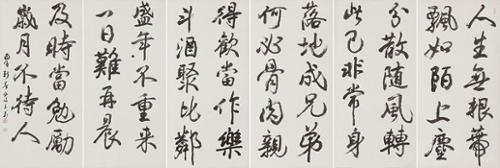 人生無根蒂
飄如陌上塵
分散隨風轉
此已非常身
落地成兄弟
何必骨肉親
得歡當作樂
斗酒聚比鄰
盛年不重來
一日難再晨
及時當勉勵
歲月不待人